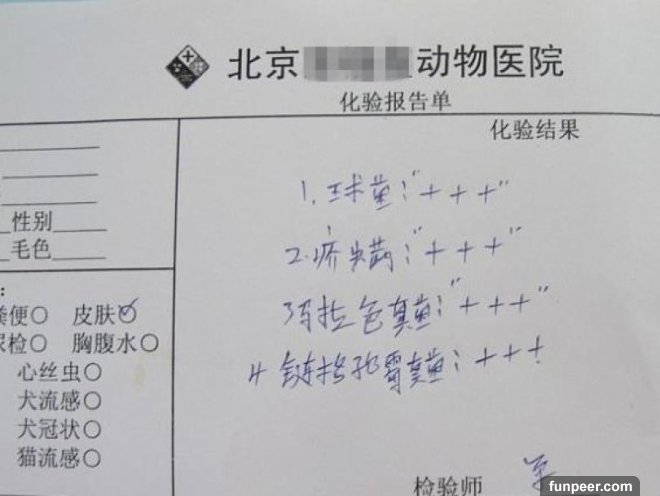 北京 动物医院
化验报告单
化验结果
性别
毛色
粪便○ 皮肤○
尿检○ 胸腹水○
心丝虫○
犬流感○
犬冠状○
猫流感○
1. 球菌："+++"
2. 疥螨："+++"
3 马拉色真菌："+++"
4 链格孢霉真菌：+++
检验师
funpeer.com